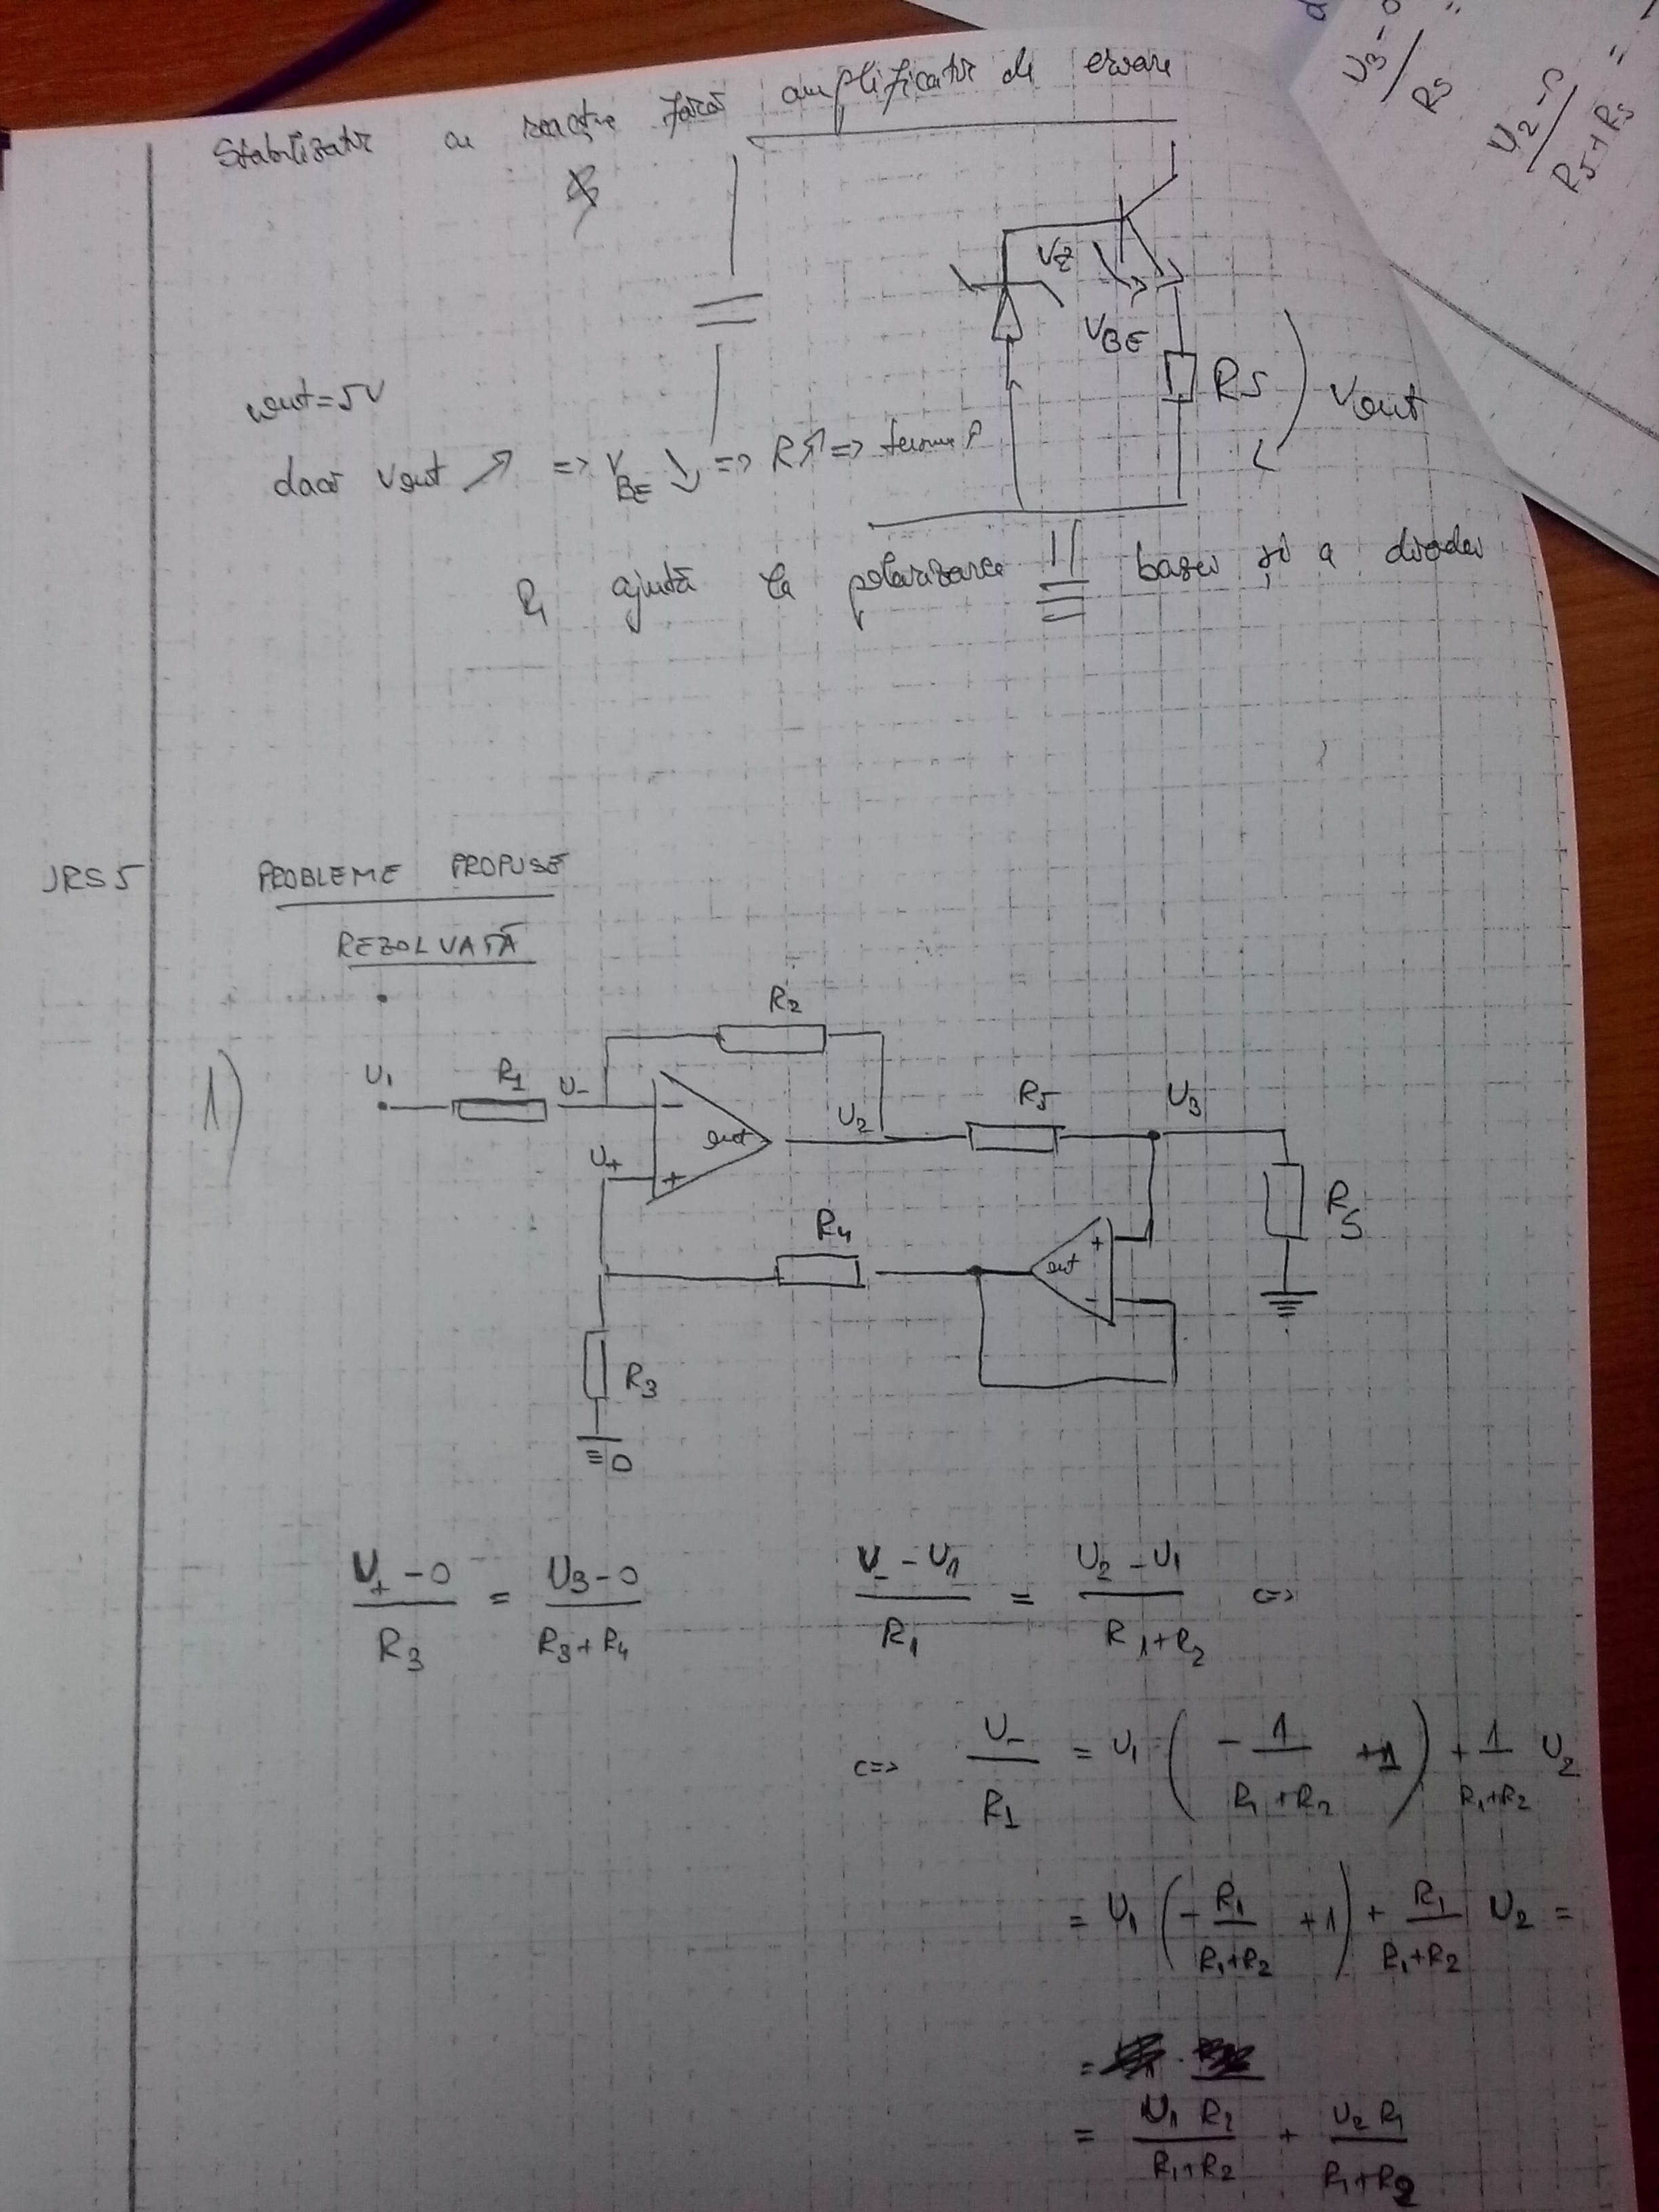 Stabilizator cu reacție fără amplificator de eroare
U3-0
R5
U2-0
R5+RS
=
VZ
VBE
RS
Vout
Vout=5V
dacă Vout ↗ => VBE ↘ => R↗ =>
R1 ajută la polarizarea bazei și a diodei
PROBLEME PROPUSE
REZOLVATĂ
1)
U1
R1
U-
R2
U+
-
+
out
U2
R5
U3
RS
R4
out
+
-
R3
0
U+ - 0 / R3 = U3-0 / R3+R4
U- - U1 / R1 = U2 - U1 / R1+R2 <=>
<=> U- / R1 = U1 ( - 1 / R1+R2 +1 ) + 1 / R1+R2 U2
= U1 ( - R1 / R1+R2 +1 ) + R1 / R1+R2 U2 =
=
= U1 R2 / R1+R2 + U2 R1 / R1+R2